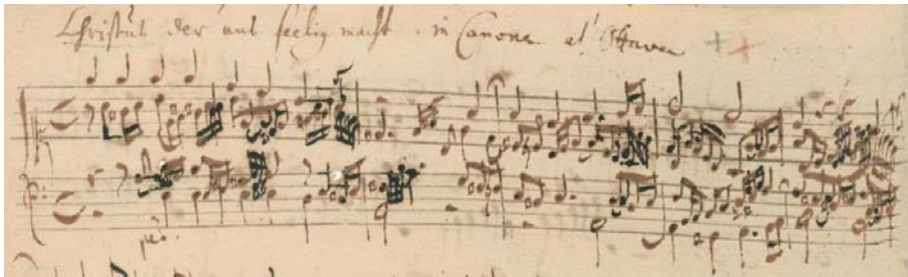 Christus der uns seelig macht. in Canone al' Ottava
ped.